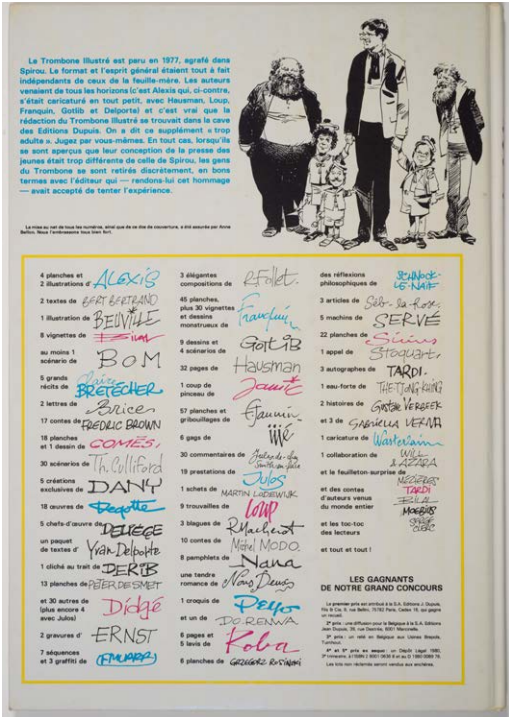 Le Trombone Illustré est peru en 1977, agrafé dans
Spirou. Le format et l'esprit général étaient tout à fait
indépendants de ceux de la feuille-mère. Les auteurs
venaient de tous les horizons (c'est Alexis qui, ci-contre,
s'était caricaturé en tout petit, avec Hausman, Loup,
Franquin, Gotlib et Delporte) et c'est vrai que la
rédaction du Trombone Illustré se trouvait dans la cave
des Editions Dupuis. On a dit ce supplément « trop
adulte ». Jugez par vous-mêmes. En tout cas, lorsqu'ils
se sont aperçus que leur conception de la presse des
jeunes était trop différente de celle de Spirou, les gens
du Trombone se sont retirés discrètement, en bons
termes avec l'éditeur qui — rendons-lui cet hommage
— avait accepté de tenter l'expérience.
La mise au net de tous les numéros, ainsi que de ce dos de couverture, a été assurée par Anne
Nous l'embrassons tous bien fort.
4 planches et
2 illustrations d' ALEXIS
2 textes de BERT BERTRAND
1 illustration de BEUVILLE
8 vignettes de
au moins 1
scénario de BOM
5 grands
récits de Claire BRETÉCHER
2 lettres de Brice
17 contes de FREDRIC BROWN
18 planches
et 1 dessin de COMÈS.
30 scénarios de Th. Culliford
5 créations
exclusives de DANY
18 œuvres de Degotte
5 chefs-d'œuvre de DELIÈGE
un paquet
de textes d' Yvan Delporte
1 cliché au trait de DERIB
13 planches de PETER DE SMET
et 30 autres de
(plus encore 4
avec Julos) Didgé
2 gravures d' ERNST
7 séquences
et 3 graffiti de (F'MURRR)
3 élégantes
compositions de R. Follet.
45 planches,
plus 30 vignettes
et dessins
monstrueux de Franquin
9 dessins et
4 scénarios de GOTLIB
32 pages de Hausman
1 coup de
pinceau de Janic
57 planches et
gribouillages de Jannin
6 gags de
30 commentaires de
19 prestations de Julos
1 schets de MARTIN LODEWIJK
9 trouvailles de LOUP
3 blagues de R. Macherot
10 contes de Michel MODO.
8 pamphlets de Nana
une tendre
romance de Nous Deux
1 croquis de Peyo
et un de DO-RE-NWA
6 pages et
5 lavis de Koba
6 planches de GRZEGORZ ROSINSKI
des réflexions
philosophiques de SCHNOCK-LE-NAÏF
3 articles de
5 machins de SERVÉ
22 planches de Sirius
1 appel de Stoquart.
3 autographes de TARDI.
1 eau-forte de THE-TJONG-KHING
2 histoires de Gustave VERBEEK
et 3 de GABRIELLA VERNA
1 caricature de Wasterlain
1 collaboration de WILL & AZARA
et le feuilleton-surprise de MÉZIÈRES
et des contes TARDI
d'auteurs venus BILAL
du monde entier MOEBIUS
et les toc-toc SERGE CLERC
des lecteurs
et tout et tout !
LES GAGNANTS
DE NOTRE GRAND CONCOURS
Le premier prix est attribué à la S.A. Editions J. Dupuis,
Fils & Cie,
un recueil.
2e prix : une diffusion pour la Belgique à la S.A. Editions
Jean Dupuis, 39, rue Destrée, 6001 Marcinelle.
3e prix : un relié en Belgique aux Usines Brepols,
Turnhout.
4e et 5e prix ex aequo : un Dépôt Légal 1980,
Les lots non réclamés seront vendus aux enchères.